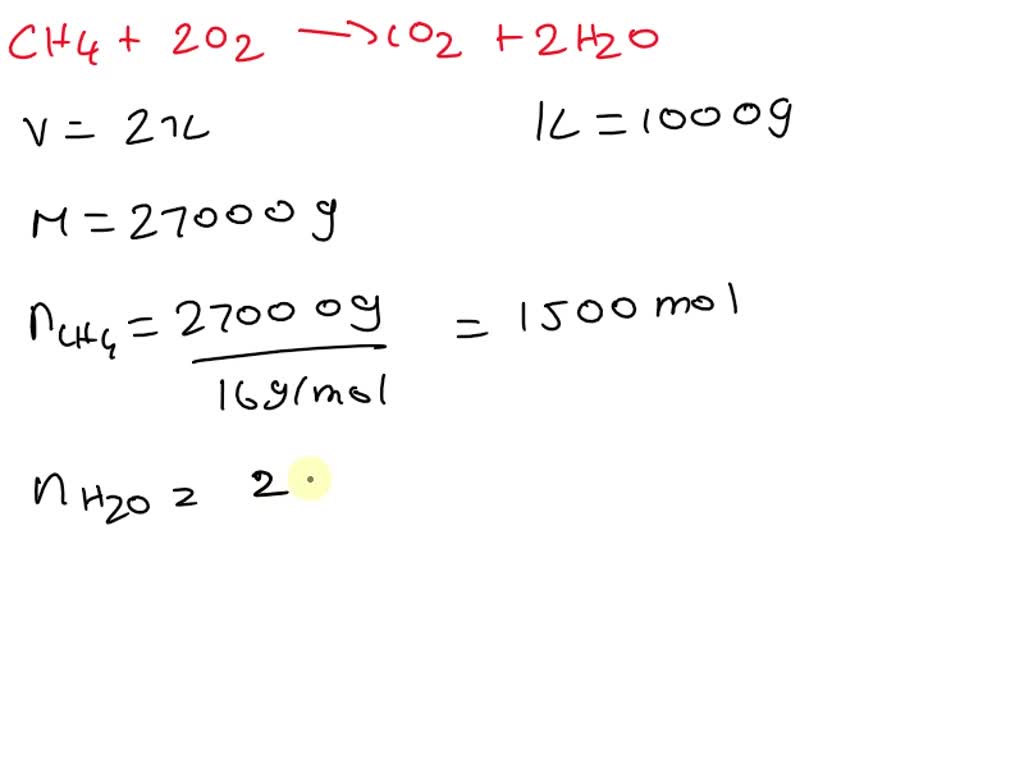 CH4 + 2O2 → CO2 + 2H2O
V = 27L 1L = 1000g
M = 27000g
nCH4 = 27000g / 16g/mol = 1500 mol
nH2O = 2